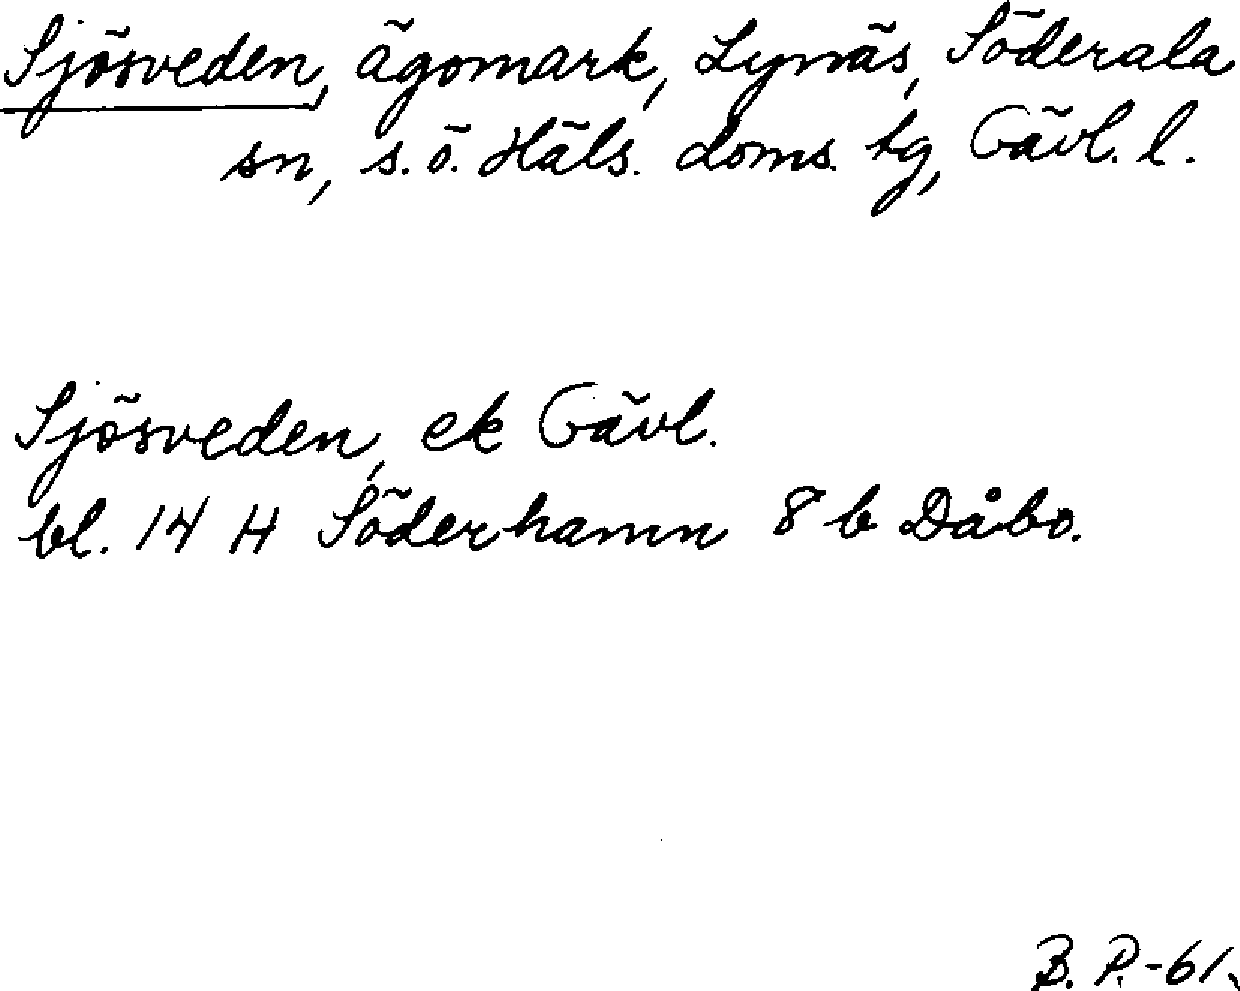 Sjösveden, ägomark, Lynäs, Söderala
sn, s.ö. Häls. doms. tg, Gävl. l.
Sjösveden, ek Gävl.
bl. 14 H Söderhamn 8 b Dåbo.
B. P.-61.